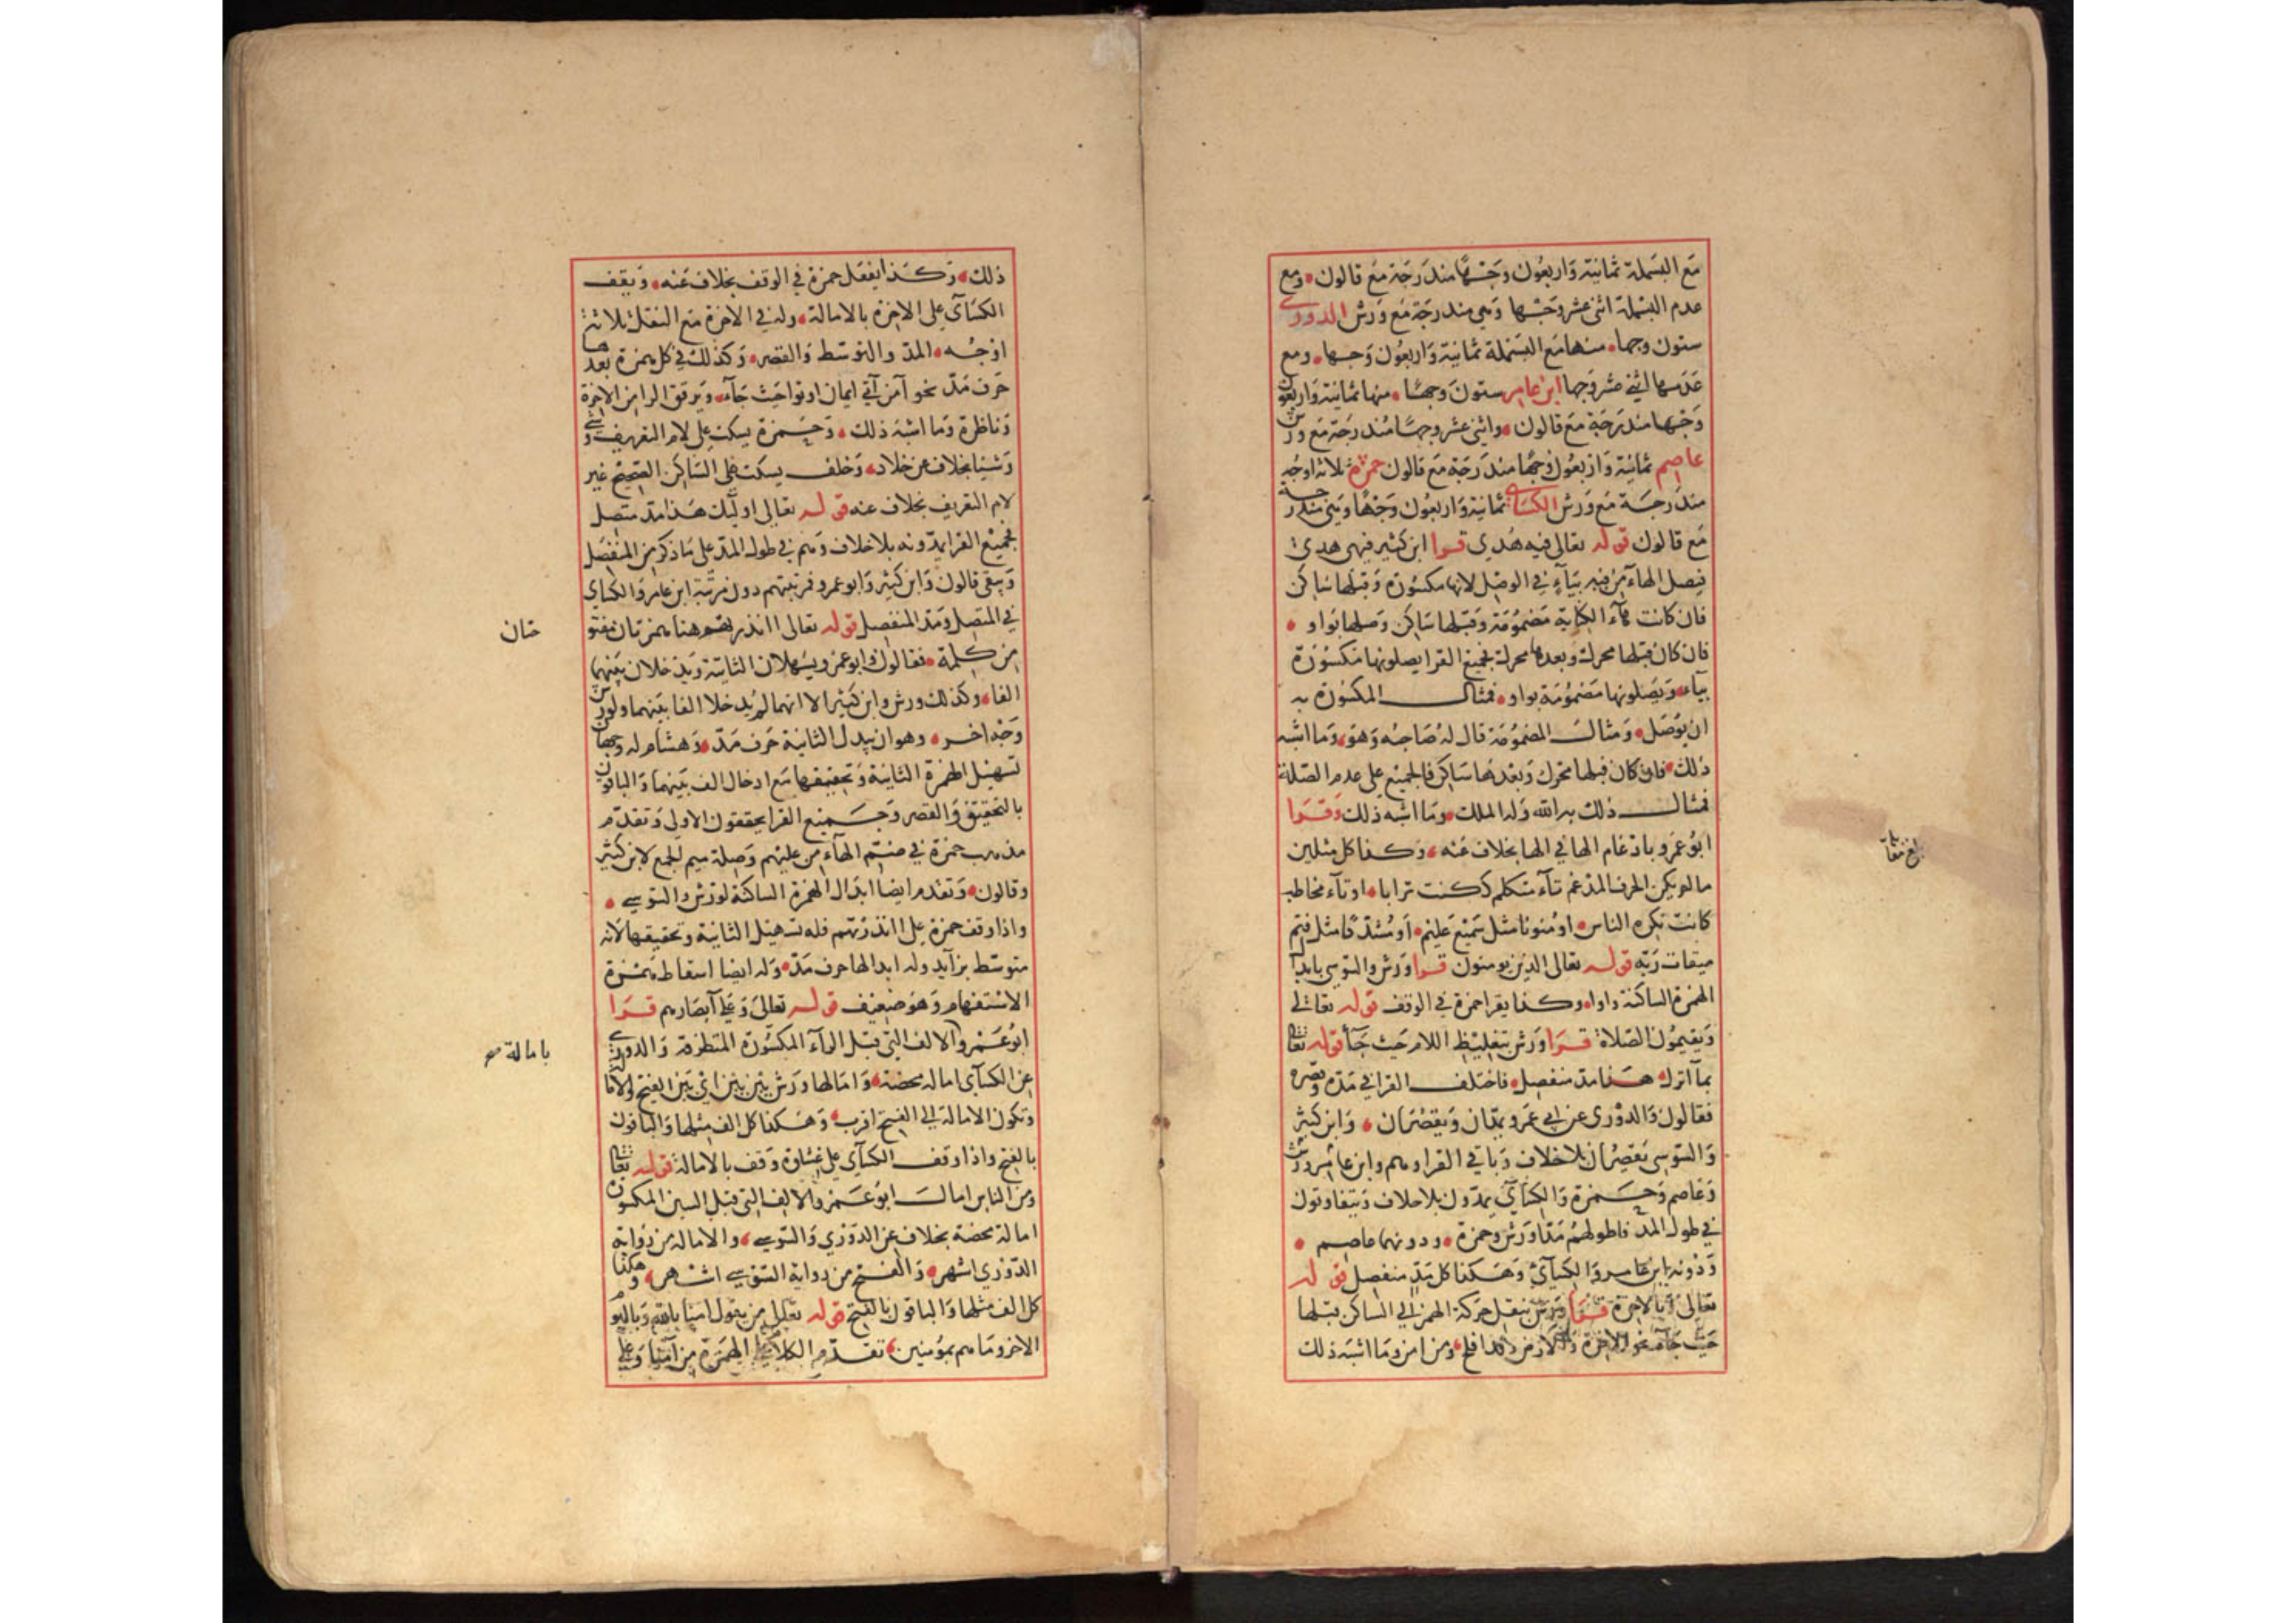 مع البسملة ثمانية واربعون وجها مندرجة مع قالون ومع
عدم البسملة اثنى عشر وجها وهي مندرجة مع ورش الدوري
ستون وجها منها مع البسملة ثمانية واربعون وجها ومع
عدمها اثنى عشر وجها ابن عامر ستون وجها منها ثمانية واربعون
وجها مندرجة مع قالون واثنى عشر وجها مندرجة مع ورش
عاصم ثمانية واربعون وجها مندرجة مع قالون حمزة ثلاثة اوجه
مندرجة مع ورش الكسائي ثمانية واربعون وجها وهي مندرجة
مع قالون قوله تعالى فيه هدى قرا ابن كثير فيهى هدى
فيصل الهاء من فيه بياء في الوصل لانها مكسورة وقبلها ساكن
فان كانت هاء الكناية مضمومة وقبلها ساكن وصلها بواو
فان كان قبلها محركة وبعدها محركة فجميع القرا يصلونها مكسورة
بياء ويصلونها مضمومة بواو فمثال المكسورة به
ان يوصل ومثال المضمومة قال له صاحبه وهو وما اشبه
ذلك فان كان قبلها متحرك وبعدها ساكن فالجميع على عدم الصلة
فمثال ذلك به الله وله الملك وما اشبه ذلك وقرا
ابو عمرو بادغام الها في الها بخلاف عنه وكذا كل مثلين
ما لم يكن الحرف المدغم تاء متكلم ككنت ترابا او تاء مخاطب
كانت تكره الناس او منونا مثل سميع عليم او مشددا مثل فتم
ميقات ربه قوله تعالى الذين يومنون قرا ورش والسوسي بابدال
الهمزة الساكنة واوا وكذا يقرا حمزة في الوقف قوله تعالى
ويقيمون الصلاة قرا ورش بتغليظ اللام حيث جآ قوله تعالى
بما انزل هذا مد منفصل فاختلف القرا في مده وقصره
فقالون والدوري عن ابي عمرو يمدان ويقصران وابن كثير
والسوسي يقصران بلا خلاف وباقي القرا وهم وابن عامر وورش
وعاصم وحمزة والكسائي يمدون بلا خلاف ويتفاوتون
في طول المد فاطولهم مدا ورش وحمزة ودونهما عاصم
ودونه ابن عامر والكسائي وهكذا كل مد منفصل قوله
تعالى وبالاخرة قرا ورش بنقل حركة الهمز الى الساكن قبلها
حيث جاء نحو الاخرة والارض وقد افلح ومن امن وما اشبه ذلك
بلغ مقابلة
ذلك وكذا يفعل حمزة في الوقف بخلاف عنه ويقف
الكسائي على الاخرة بالامالة وله في الاخرة مع النقل ثلاثة
اوجه المد والتوسط والقصر وكذلك في كل همزة بعدها
حرف مد نحو آمن آتي ايمان اوتوا حيث جآء ويرقق الرا من الاخرة
وناظرة وما اشبه ذلك وحمزة يسكت على لام التعريف وشيء
وشيئا بخلاف عن خلاد وخلف يسكت على الساكن الصحيح غير
لام التعريف بخلاف عنه قوله تعالى اولئك هذا مد متصل
فجميع القرا يمدونه بلا خلاف وهم في طول المد على ما ذكر من المنفصل
وبقي قالون وابن كثير وابو عمرو فمرتبتهم دون مرتبة ابن عامر والكسائي
في المتصل ومد المنفصل قوله تعالى اانذرتهم هنا همزتان مفتو
حتان
من كلمة فقالون وابو عمرو يسهلان الثانية ويدخلان بينهما
الفا وكذلك ورش وابن كثير الا انهما لم يدخلا الفا بينهما ولورش
وجه اخر وهو ان يبدل الثانية حرف مد وهشام له وجهان
تسهيل الهمزة الثانية وتحقيقها مع ادخال الف بينهما والباقون
بالتحقيق والقصر وجميع القرا يحققون الاولى وتقدم
مذهب حمزة في ضم الهآء من عليهم وصلة ميم الجمع لابن كثير
وقالون وتقدم ايضا ابدال الهمزة الساكنة لورش والسوسي
واذا وقف حمزة على اانذرتهم فله تسهيل الثانية وتحقيقها لانه
متوسط بزآيد وله ابدالها حرف مد وله ايضا اسقاط همزة
الاستفهام وهو ضعيف قوله تعالى وعلى آبصارهم قرا
ابو عمرو الالف التي قبل الرآء المكسورة المتطرفة والدوري
بامالة صح
عن الكسآئي امالة محضة وامالها ورش بين بين اي بين الفتح والامالة
وتكون الامالة الى الفتح اقرب وهكذا كل الف مثلها والباقون
بالفتح واذا وقف الكسآئي على غشاوة وقف بالامالة قوله تعالى
ومن الناس امال ابو عمرو الالف التي قبل السين المكسورة
امالة محضة بخلاف عن الدوري والسوسي والامالة من رواية
الدوري اشهر والفتح من رواية السوسي اشهر وهكذا
كل الف مثلها والباقون بالفتح قوله تعالى من يقول امنا بالله وباليوم
الاخر وما هم بمؤمنين تقدم الكلام على الهمزة من آمنا وعلى